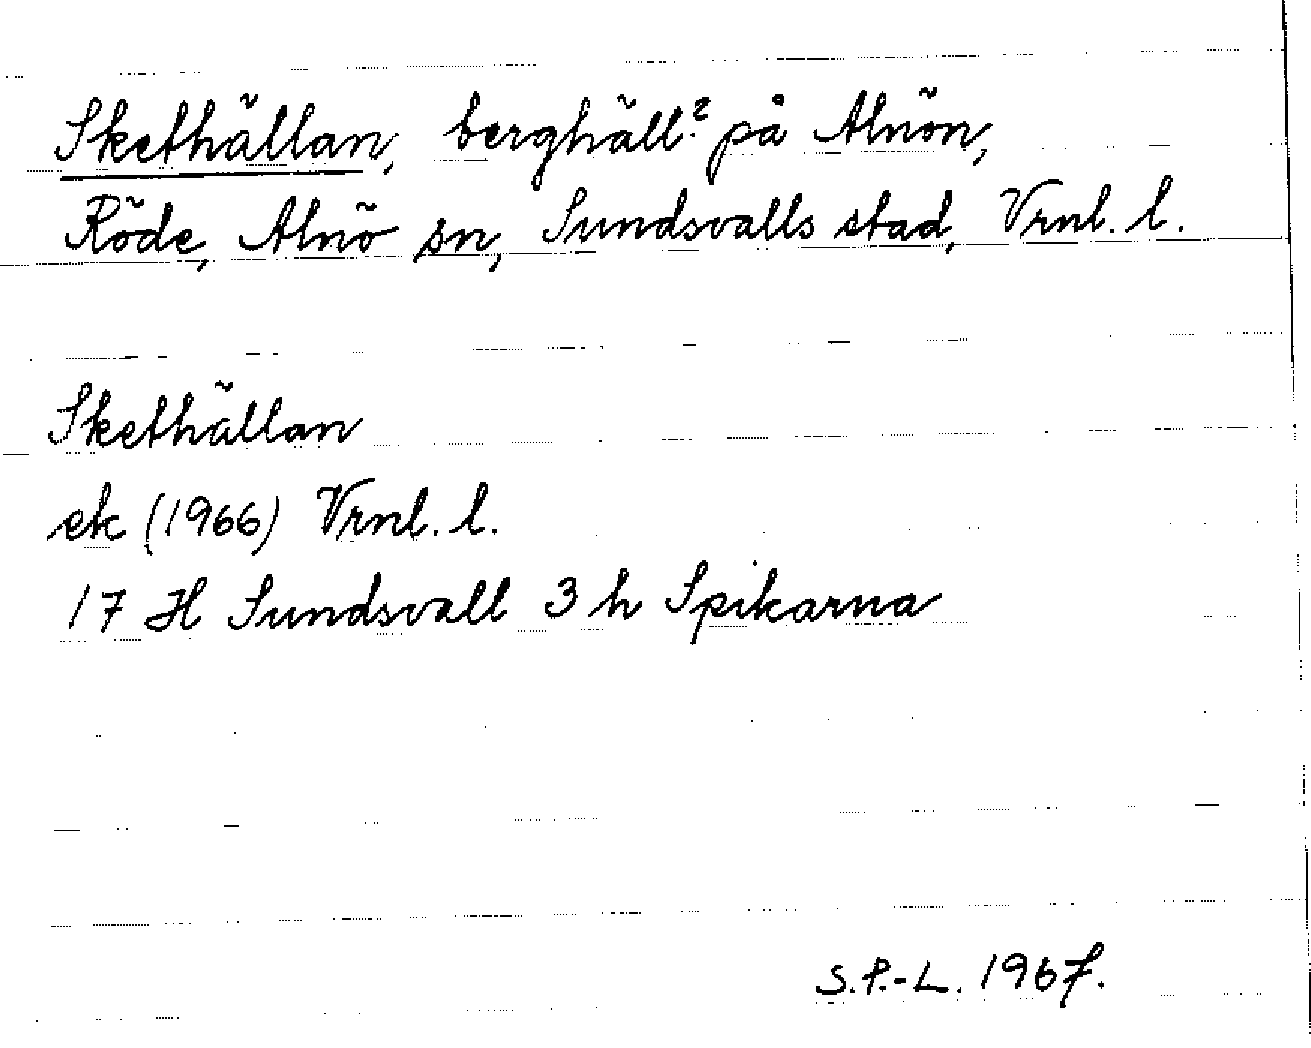 Skethällan, berghäll? på Alnön,
Röde, Alnö sn, Sundsvalls stad, Vrnl. l.
Skethällan
ek (1966) Vrnl. l.
17 H Sundsvall 3 h Spikarna
S.P.-L. 1967.